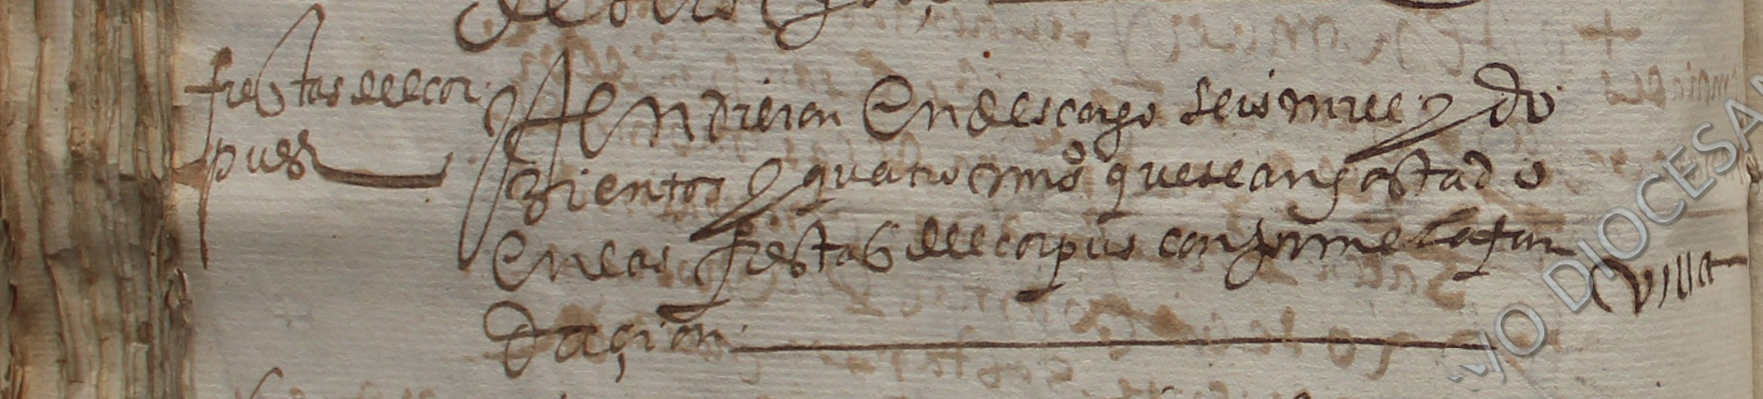 fiestas del cor
pus
Yten dieron en descargo seis mill y do
zientos y quatro mrs que se an gastado
en las fiestas del corpus conforme la fun
daçion
Villa
VO DIOCESA